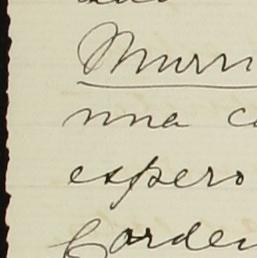 Murri
una c
espero
Corde